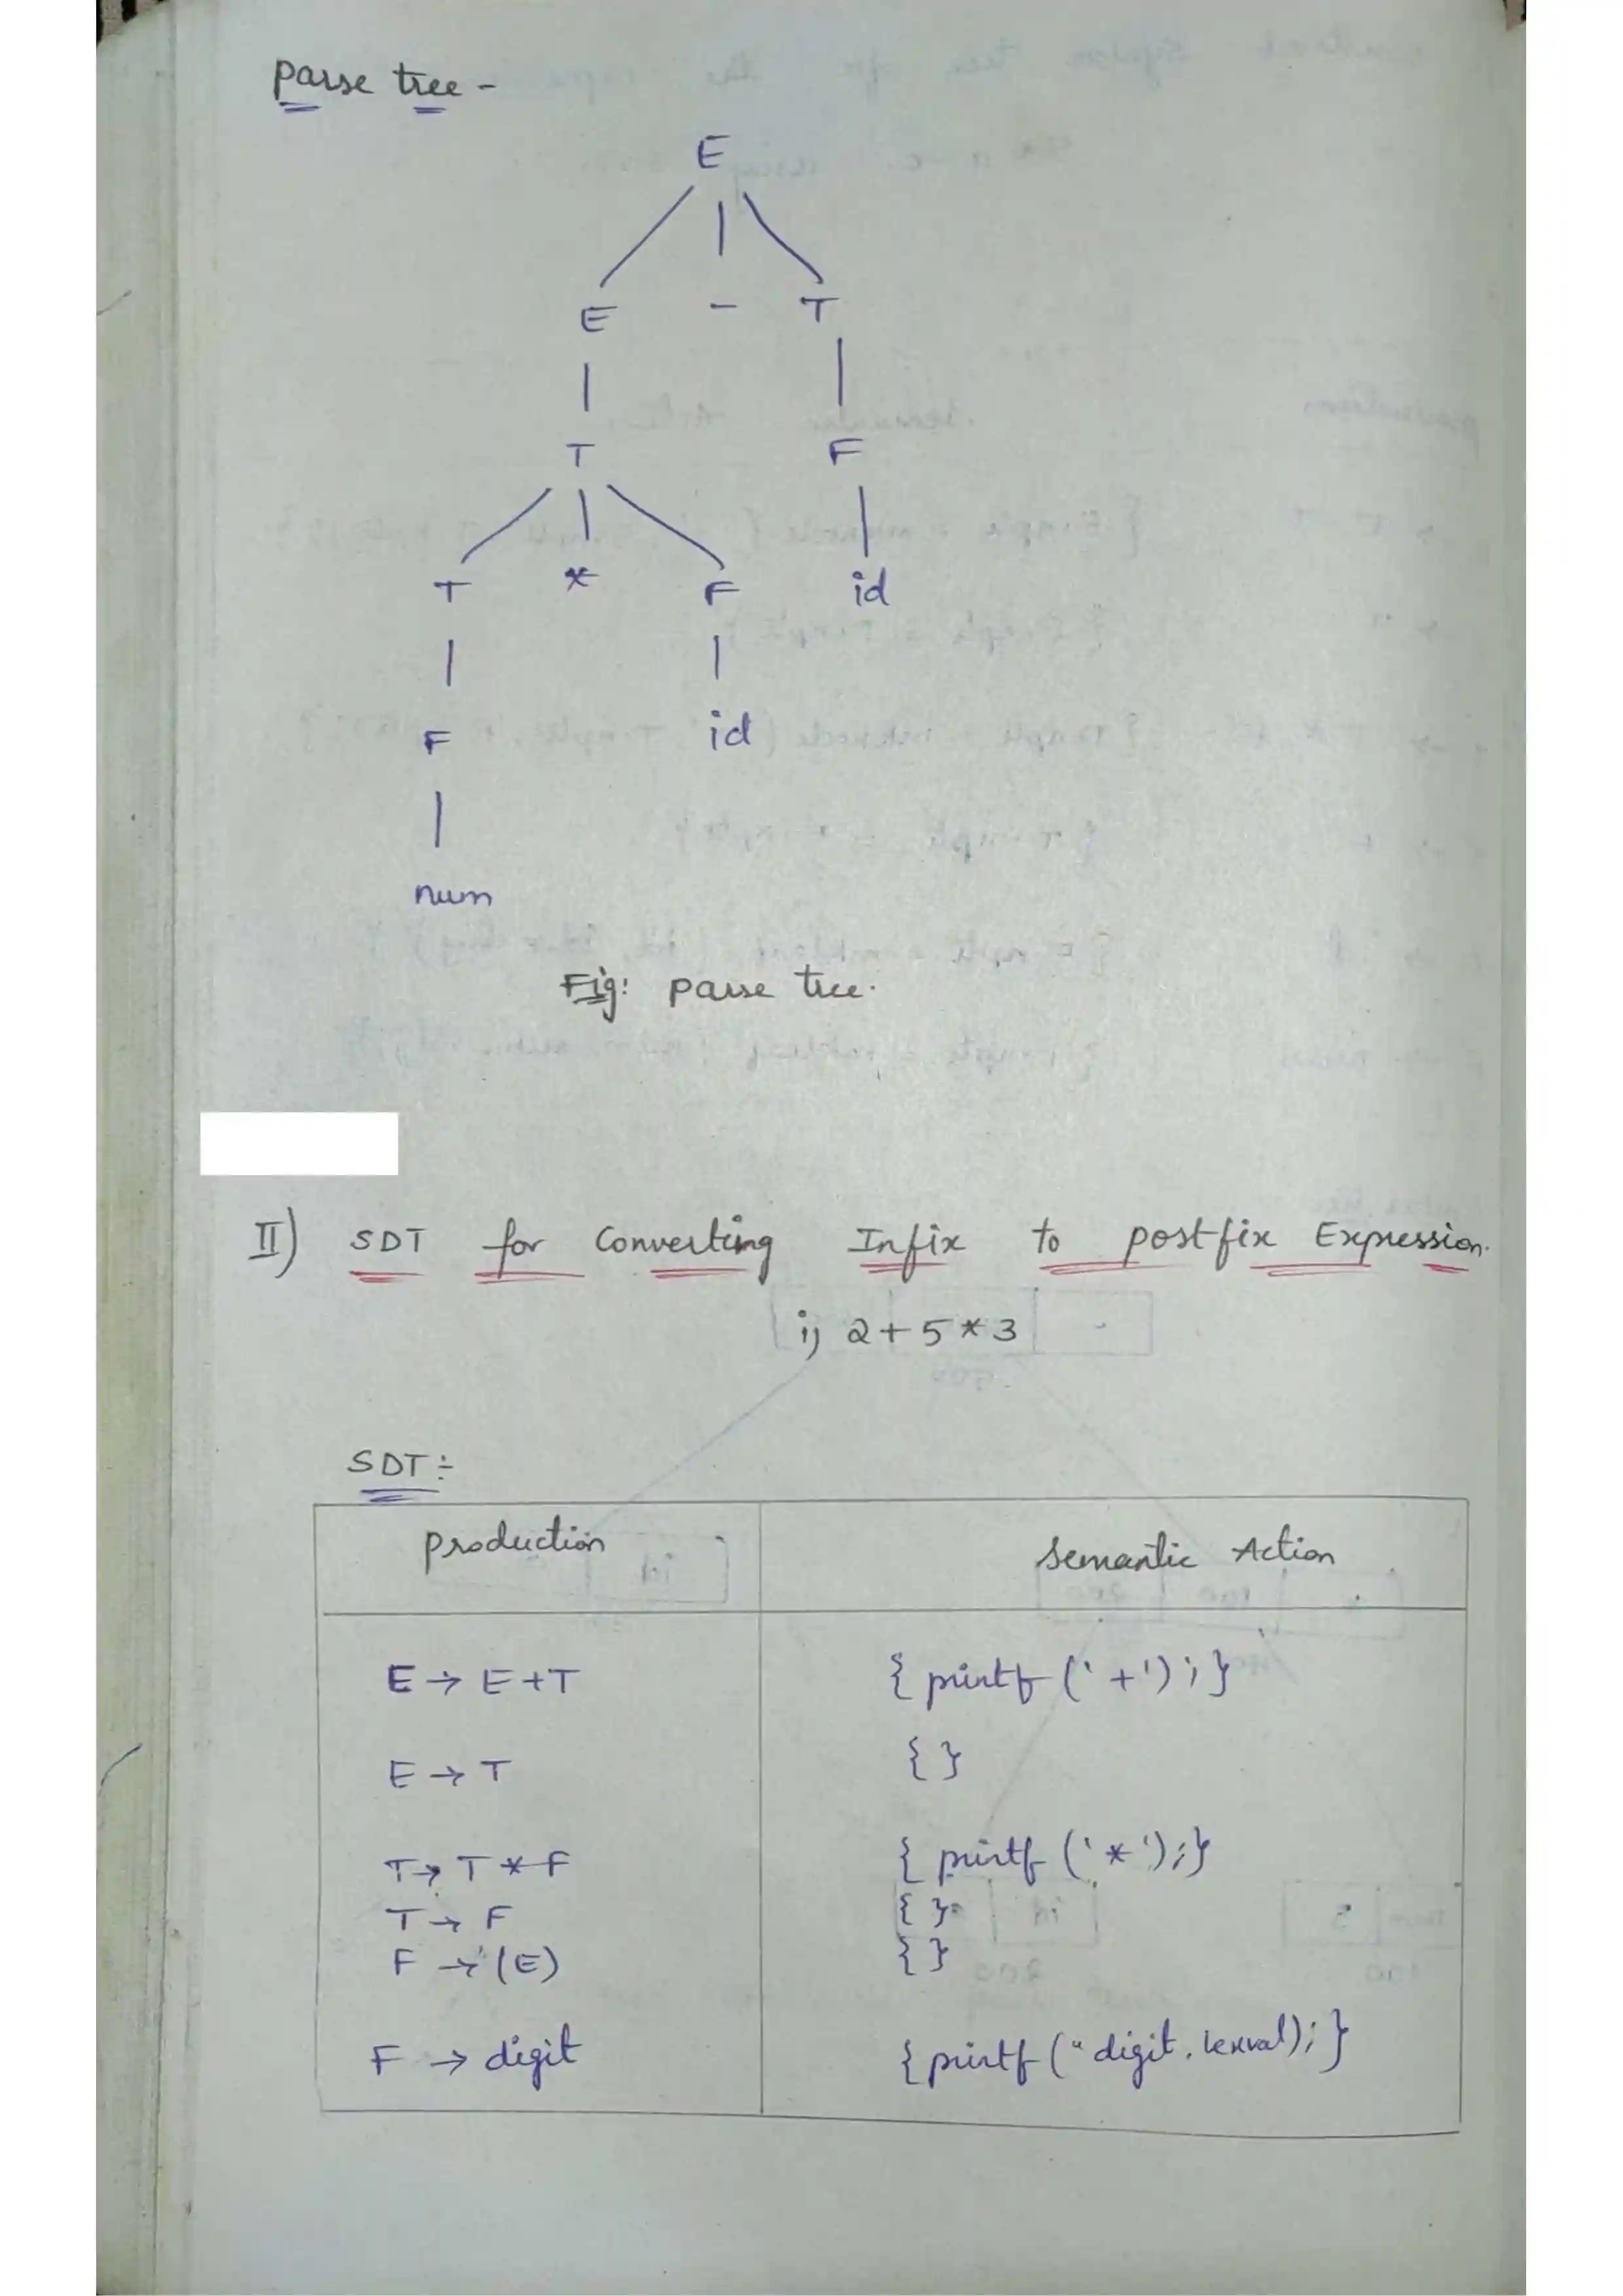 Parse tree -
E
E - T
T F
T * F id
F id
num
Fig: Parse tree.
II) SDT for Converting Infix to postfix Expression.
i) 2+5*3
SDT:-
production Semantic Action
E → E+T { printf ('+'); }
E → T { }
T → T * F { printf ('*'); }
T → F { }
F → (E) { }
F → digit { printf (" digit. lexval); }